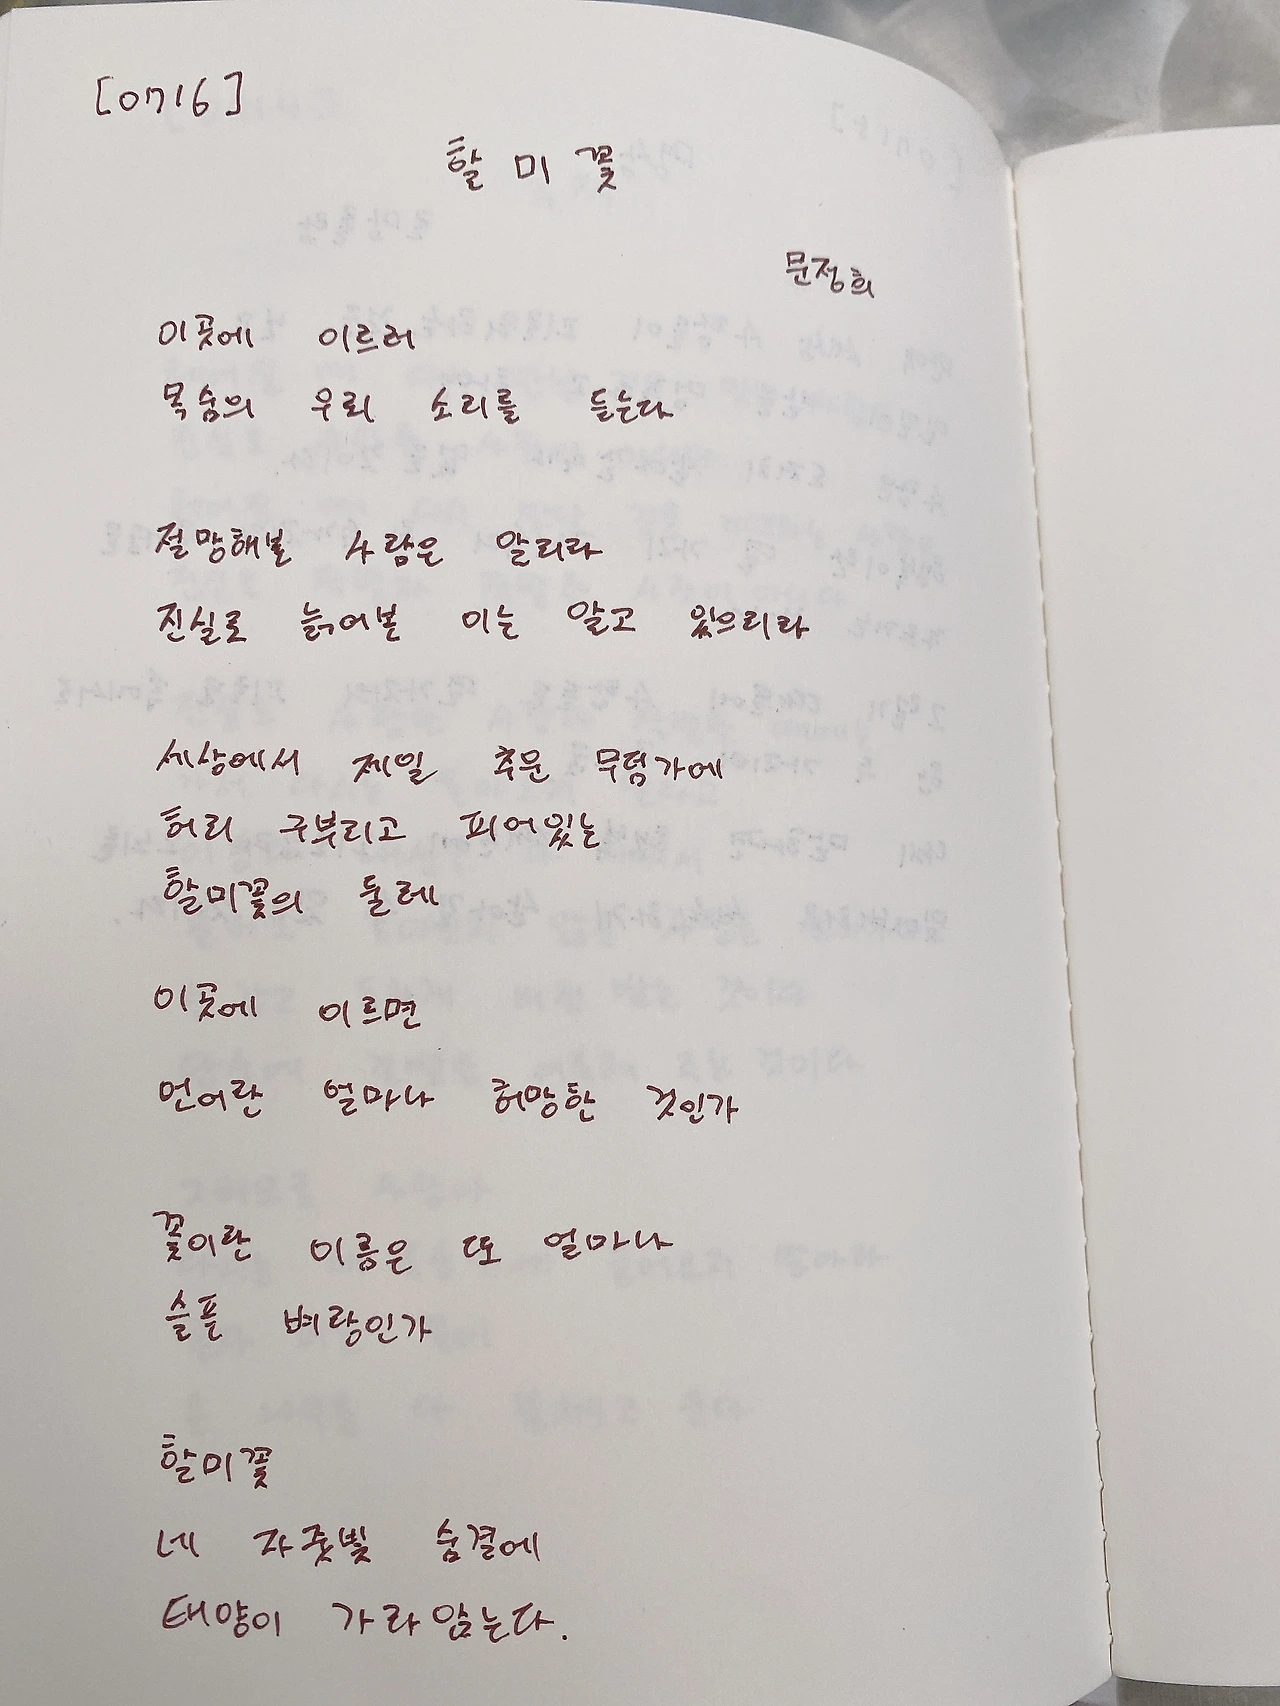 [0716]
할미꽃
문정희
이곳에 이르러
목숨의 우뢰 소리를 듣는다
절망해볼 사람은 알리라
진실로 늙어본 이는 알고 있으리라
세상에서 제일 추운 무덤가에
허리 구부리고 피어있는
할미꽃의 둘레
이곳에 이르면
언어란 얼마나 허망한 것인가
꽃이란 이름은 또 얼마나
슬픈 벼랑인가
할미꽃
네 자줏빛 숨결에
태양이 가라앉는다.